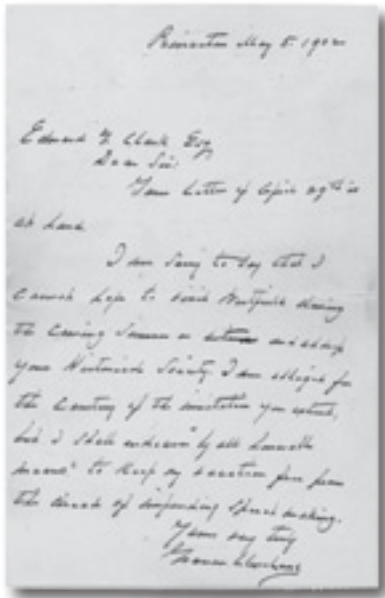 Princeton May 5. 1902
Edward Clark Esq
Dear Sir:
Your letter of April 29th is
at hand.
I am sorry to say that I
cannot hope to visit Westfield during
the coming Summer or and
your Historical Society. I am obliged for
the courtesy of the invitation you extend,
but I shall endeavor "by all honorable
means" to keep my vacation free from
the dread of impending speech making.
Yours very truly
Grover Cleveland